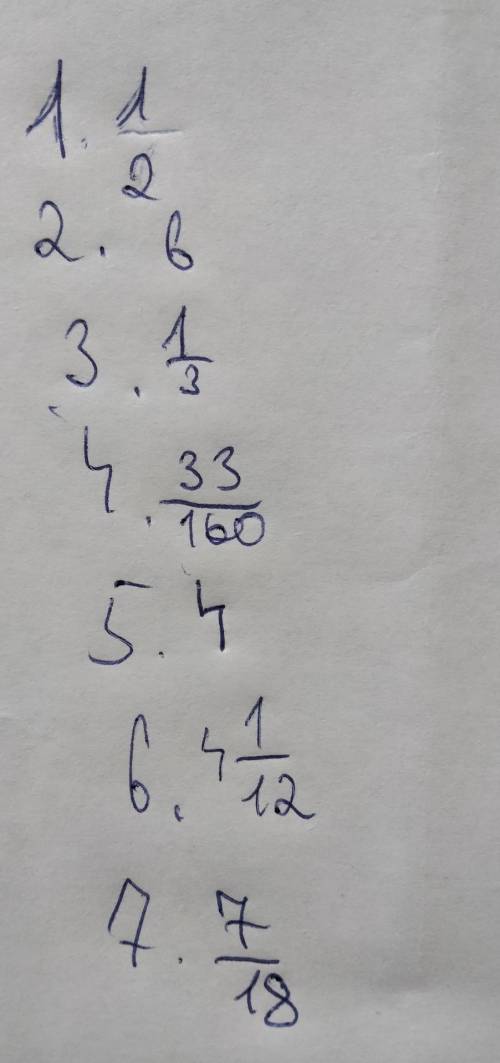 1. 1/2
2. 6
3. 1/3
4. 33/160
5. 4
6. 4 1/12
7. 7/18